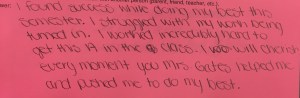 personal (parent, friend, teacher, etc.)
I found success while doing my best this
Semester. I struggled with my work being
turned in. I worked incredibly hard to
get this A in the class. I will cherish
every moment you Mrs Gates helped me
and pushed me to do my best.